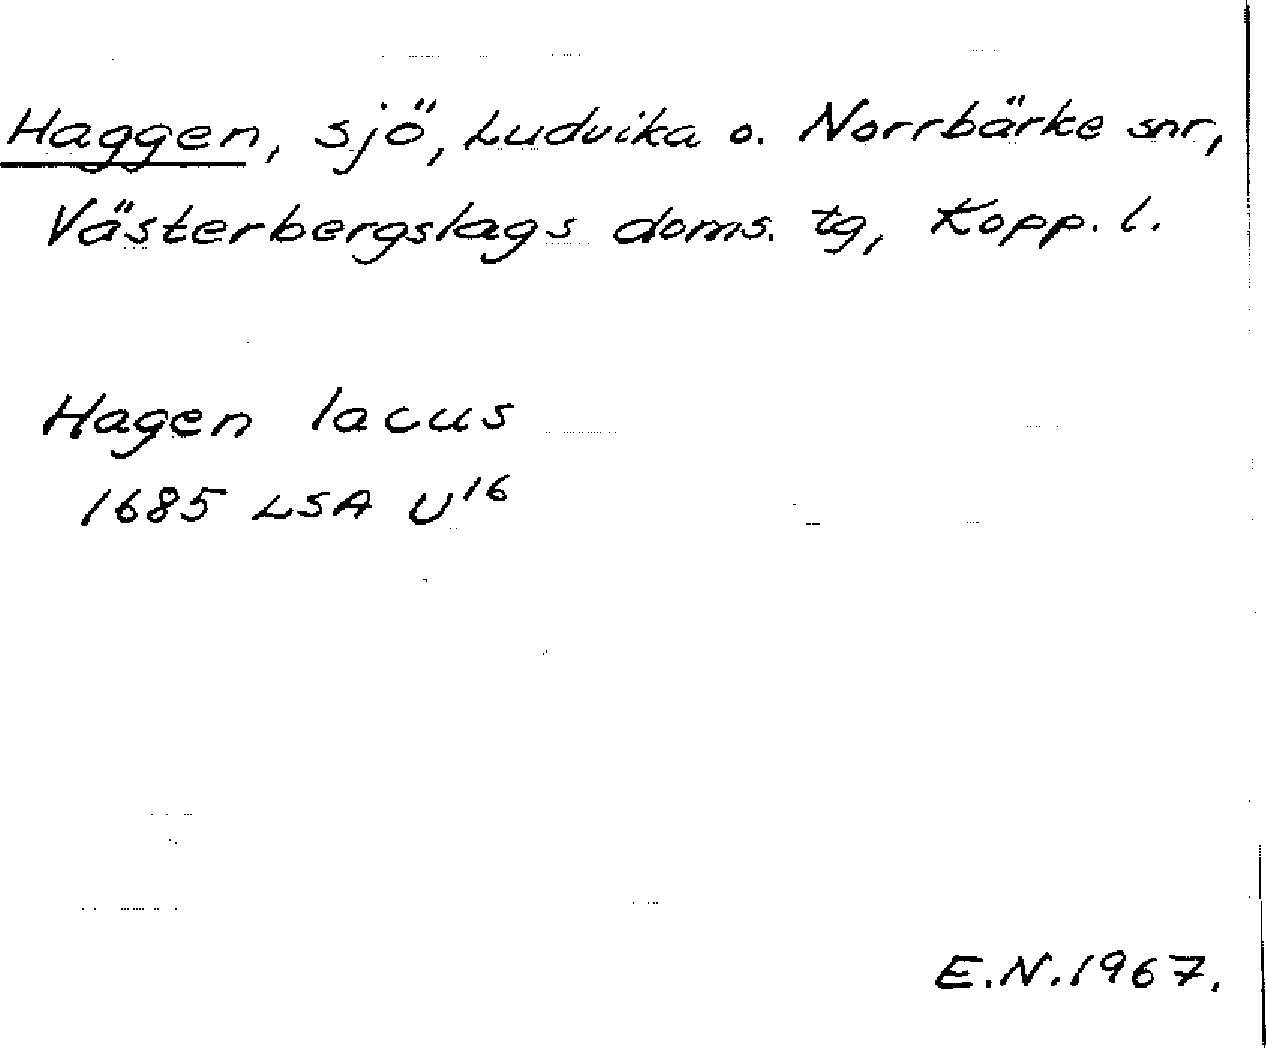 Haggen, sjö, Ludvika o. Norrbärke snr,
Västerbergslags doms. tg, Kopp. l.
Hagen lacus
1685 LSA U¹⁶
E.N.1967.